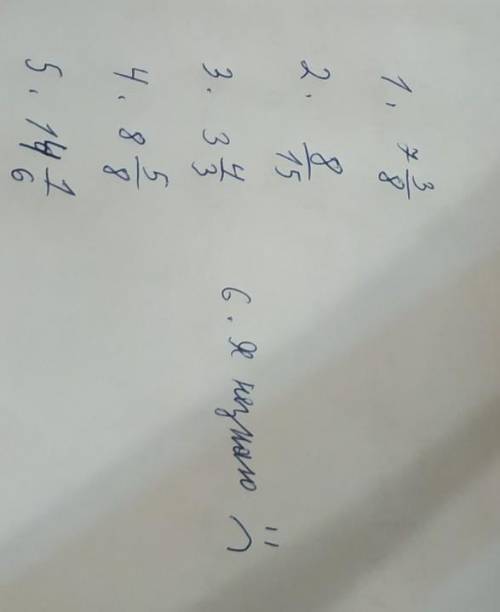 1. 7 3/8
2. 8/15
3. 3 4/3
4. 8 5/8
5. 14 1/6
6. Я незнаю :(